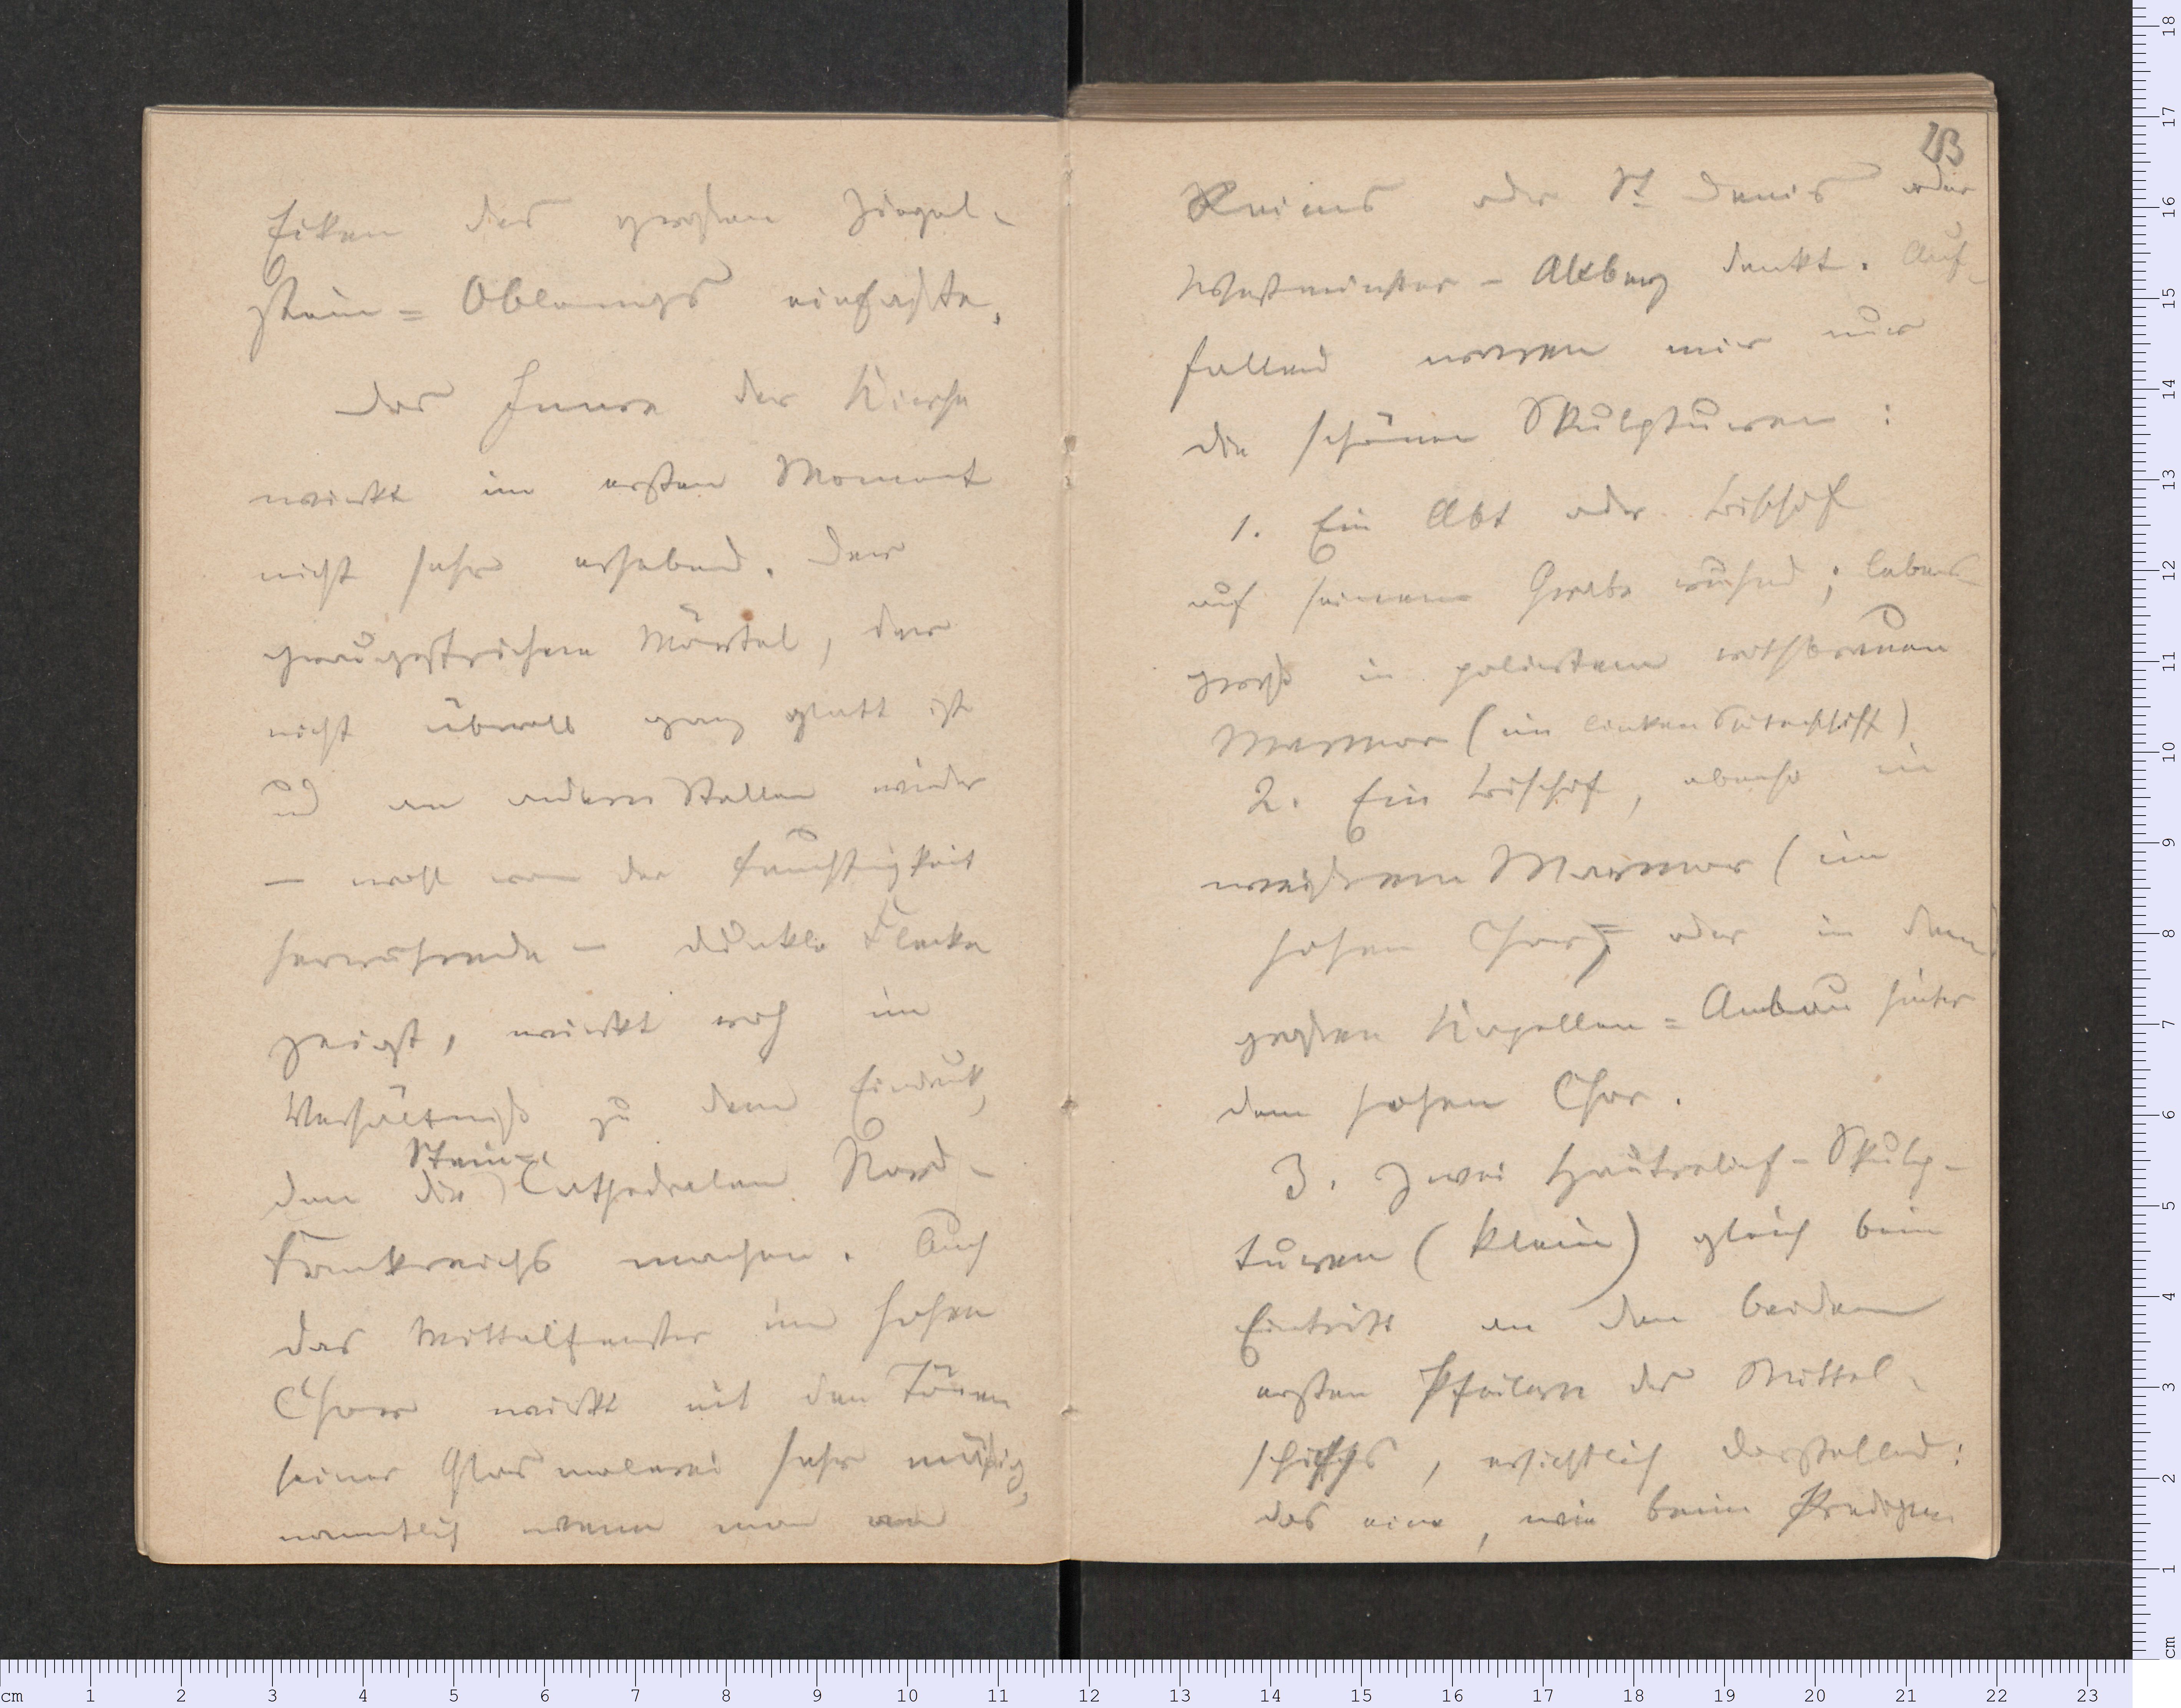 Ecken des großen Ziegel-
stein=Oblongs einfaßte.
Das Innere der Kirche
wirkt im ersten Moment
nicht sehr erhebend. Der
graugestrichene Mörtel, der
nicht überall ganz glatt ist
und an andern Stellen wieder
— wohl von der Feuchtigkeit
herrührende — dunkle Flecke
zeigt, wirkt roh im
Verhältniß zu dem Eindruck,
den die Stein=Cathedralen Nord-
frankreichs machen. Auch
das Mittelfenster im hohen
Chor wirkt mit den Tönen
seiner Glasmalerei sehr mäßig,
namentlich wenn man an
23
Reims oder St Denis oder
Westminster-Abbey denkt. Auf-
fallend waren mir nur
die schönen Skulpturen:
1. Ein Abt oder Bischof
auf seinem Grabe ruhend; lebens-
groß in poliertem rothbraunen
Marmor (im linken Seitenschiff)
2. Ein Bischof, ebenso in
weißem Marmor (im
hohen Chor) oder in dem
großen Kapellen=Anbau hinter
dem hohen Chor.
3. Zwei Hautrelief-Skulp-
turen (klein) gleich beim
Eintritt an den beiden
ersten Pfeilern des Mittel-
schiffs, ersichtlich darstellend:
das eine, wie beim Predigen